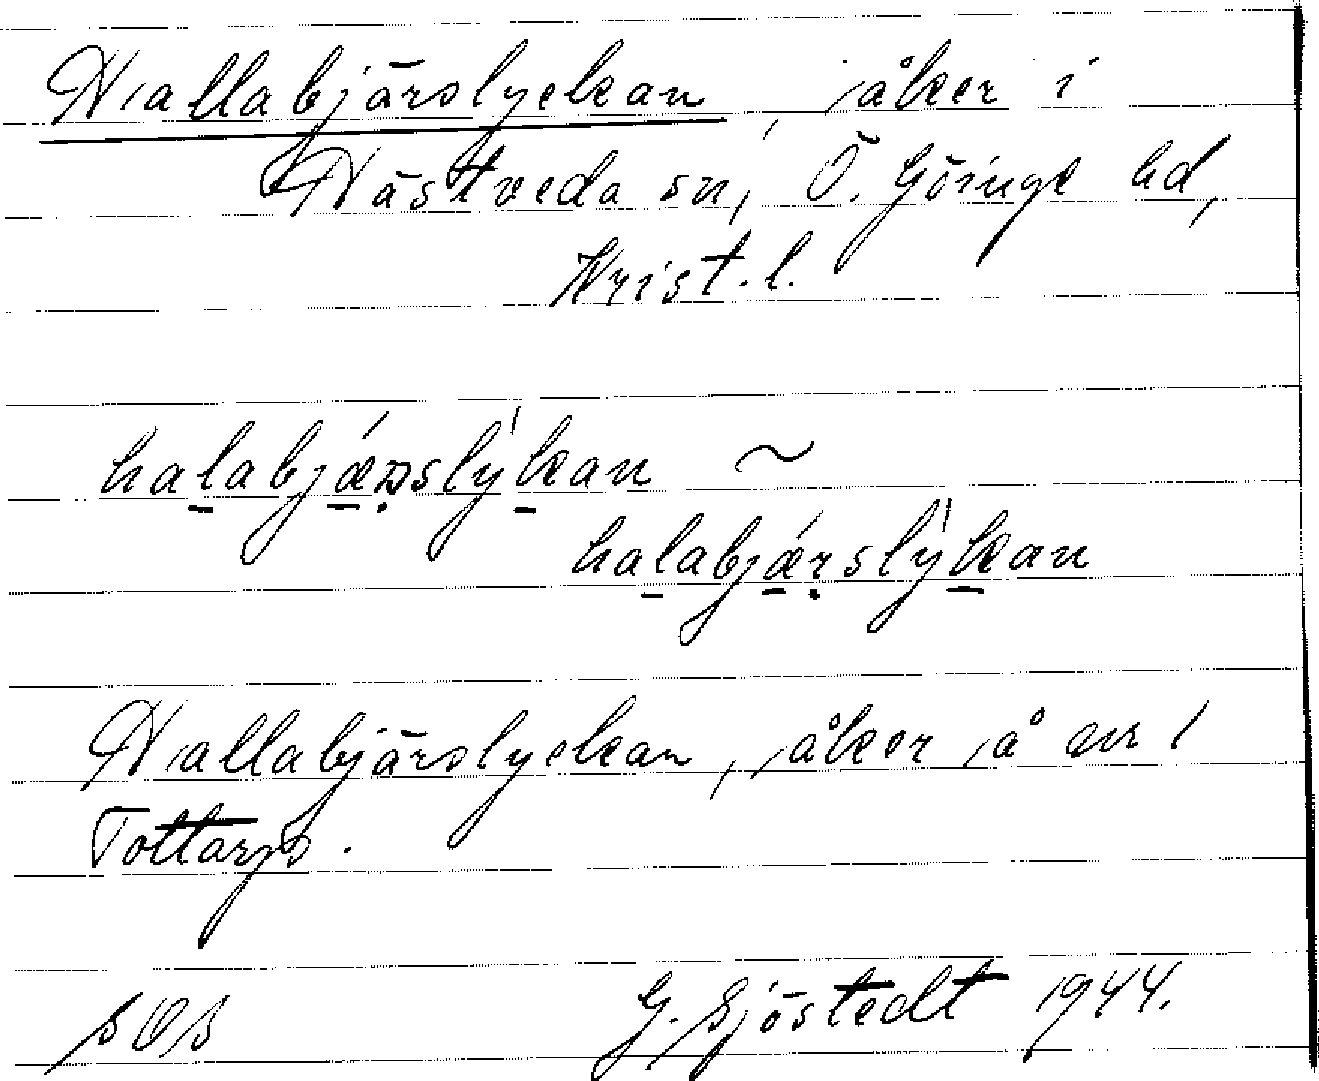 Hallabjärslyckan, åker i
Hästveda sn, Ö. Göinge hd,
Krist. l.
halabjǽʀ̣slýkan ~
halabjǽṛslýkan
Hallabjärslyckan, åker å nr 1
Tottarp.
G. Sjöstedt 1944.